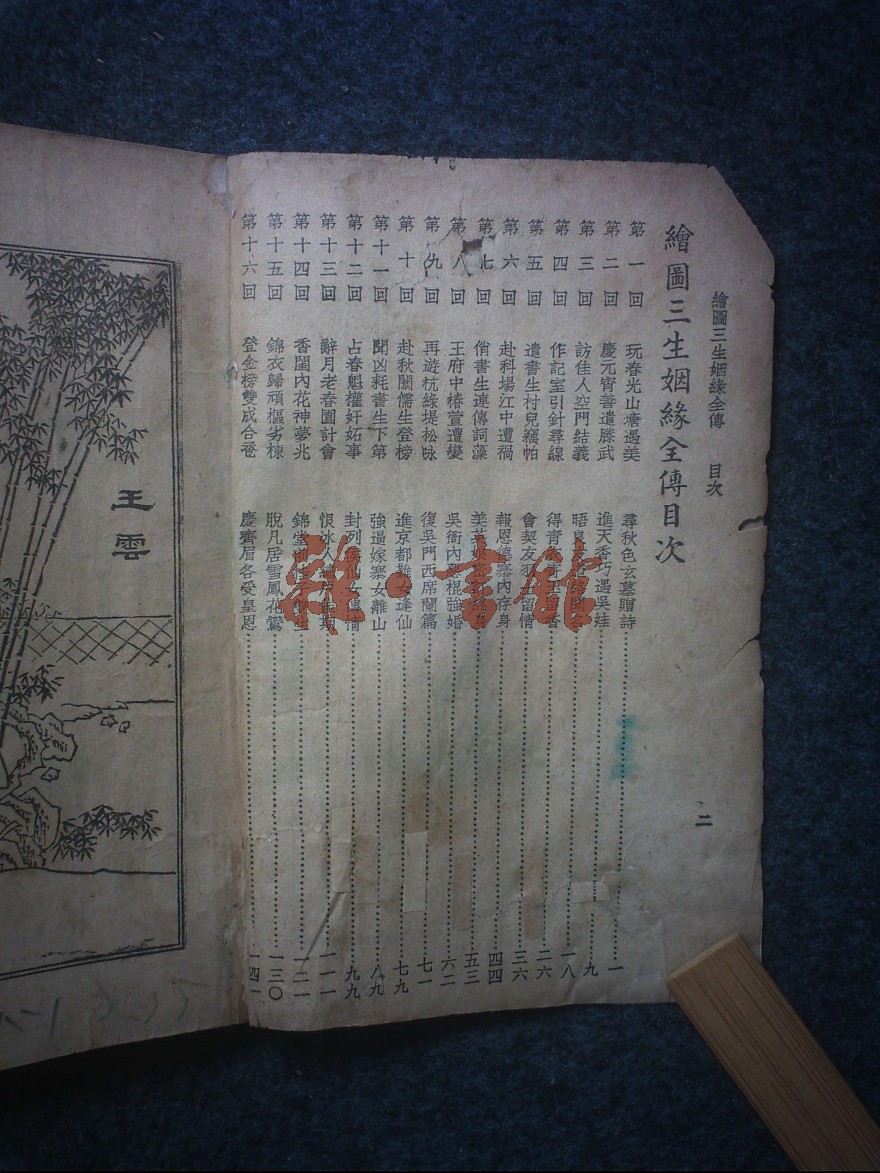 繪圖三生姻緣全傳　目次
二
繪圖三生姻緣全傳目次
第一回　玩春光山塘遇美　尋秋色玄墓贈詩……一
第二回　慶元宵善遣滕武　進天香巧遇吳娃……九
第三回　訪佳人空門結義　晤良……一八
第四回　作記室引針尋線　得青……留香……二六
第五回　遣書生村兒竊帕　會契友……留情……三六
第六回　赴科場江中遭禍　報恩德寨內存身……四四
第七回　俏書生連傳詞藻　美英娘……五三
第八回　王府中椿萱遭變　吳衙內惡棍強婚……六二
第九回　再遊杭綠堤松咏　復吳門西席蘭篇……七一
第十回　赴秋闈儒生登榜　進京都難女逢仙……七九
第十一回　聞凶耗書生下第　強逼嫁寨女離山……八九
第十二回　占春魁權奸妬事　封列侯仙女傳情……九九
第十三回　辭月老春園計會　恨冰人……期……一一一
第十四回　香閨內花神夢兆　錦堂……生……一二一
第十五回　錦衣歸頑樞劣棟　脫凡居雪鳳花鸞……一三〇
第十六回　登金榜雙成合卺　慶齊眉各受皇恩……一四一
王雲
雜·書館